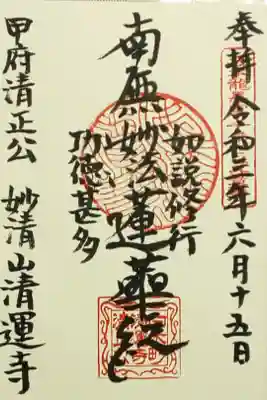 奉拝 令和三年六月十五日
如説修行
南無妙法蓮華経
功徳甚多
甲府清正公 妙清山清運寺